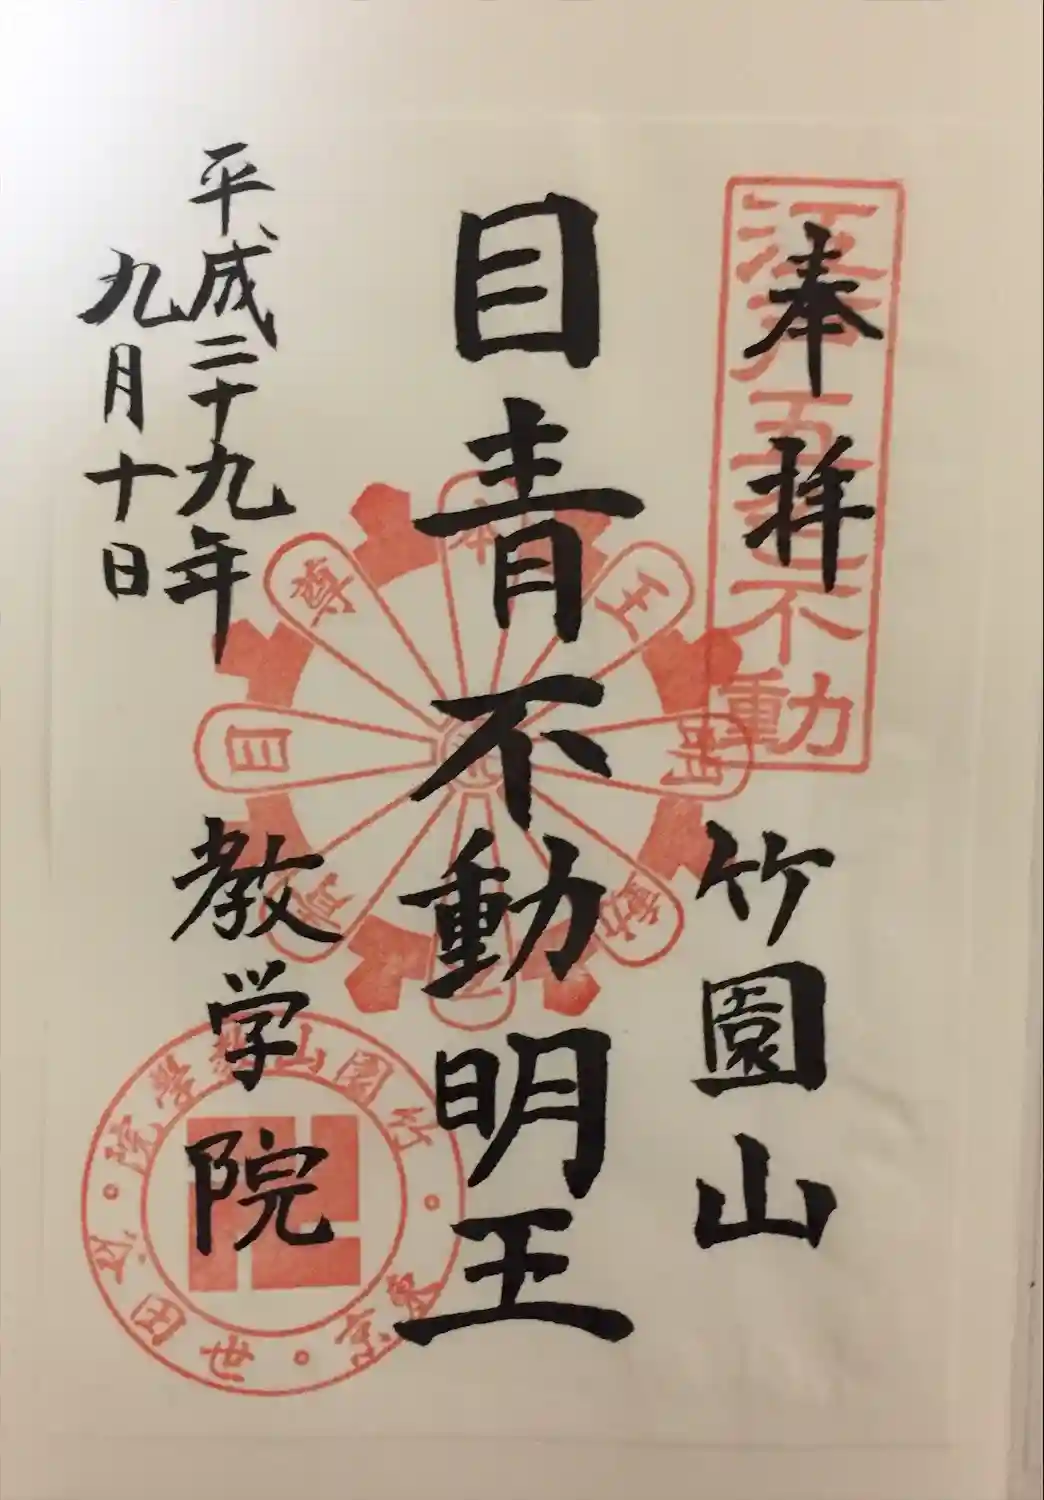 奉拝
江戸五色不動
竹園山
目青不動明王
本尊目青不動明王
平成二十九年
九月十日
教学院
竹園山教學院
東京世田谷